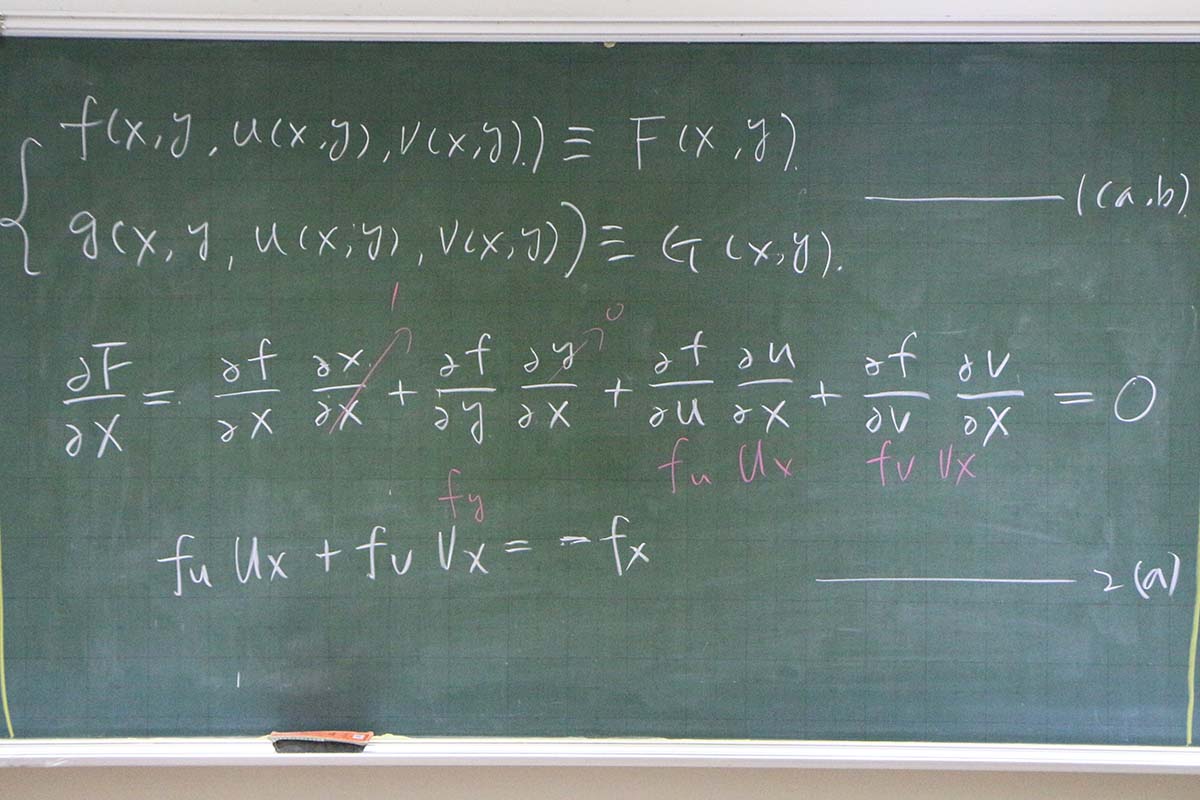 f(x,y,u(x,y),v(x,y)) ≡ F(x,y).
g(x,y,u(x,y),v(x,y)) ≡ G(x,y).
———— 1(a,b)
1 0
∂F/∂x = ∂f/∂x ∂x/∂x + ∂f/∂y ∂y/∂x + ∂f/∂u ∂u/∂x + ∂f/∂v ∂v/∂x = 0
fu Ux fv Vx
fy
fu Ux + fv Vx = -fx ———— 2(a)